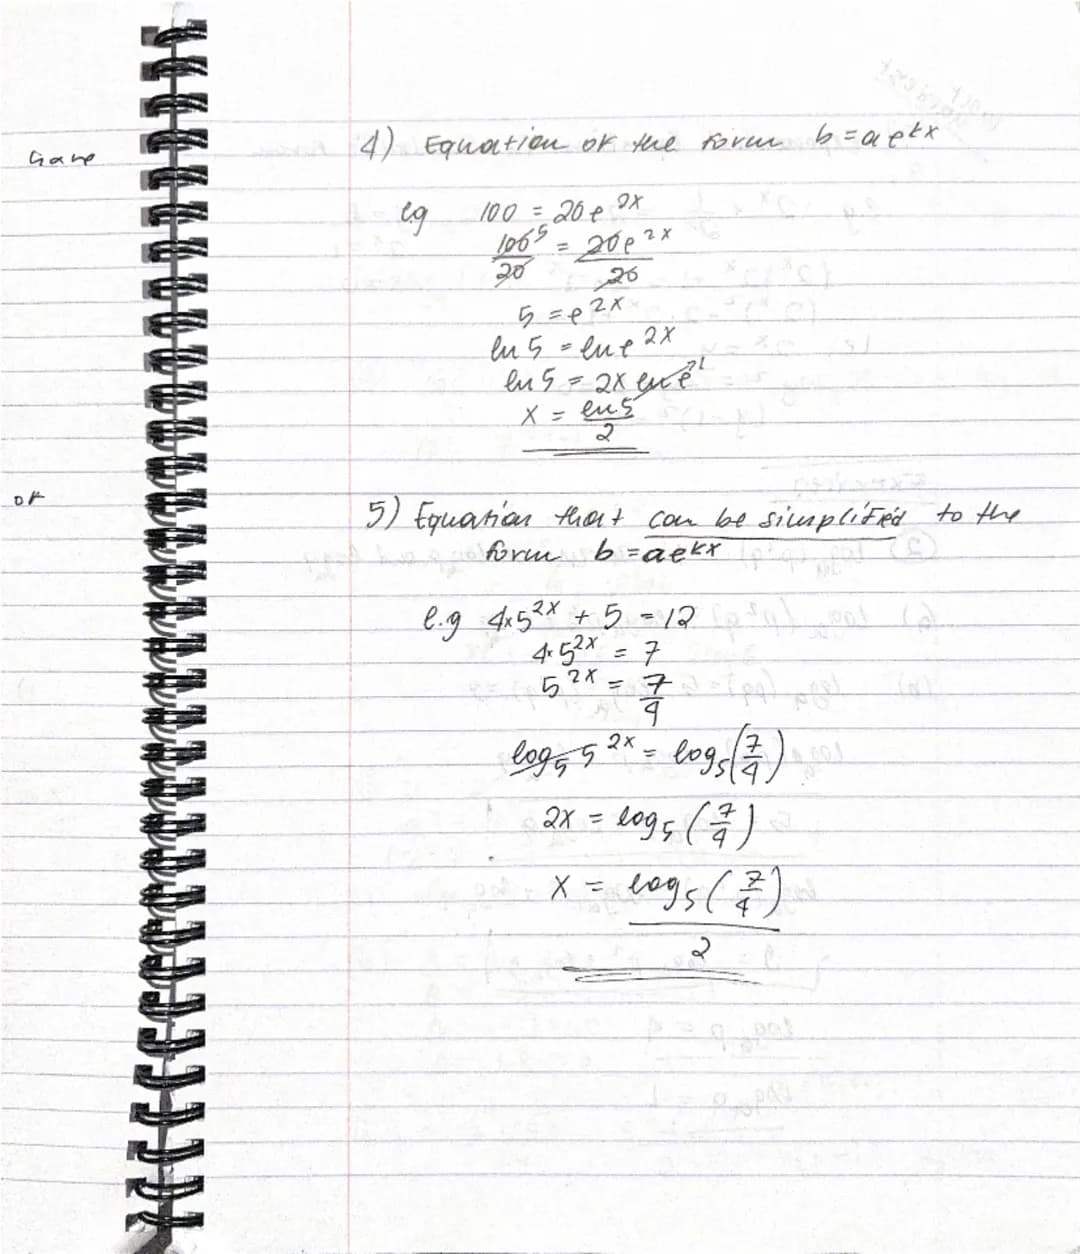 4) Equation of the form b = ae^kx
eg 100 = 20e^2x
100^5/20 = 20e^2x/20
5 = e^2x
ln 5 = ln e^2x
ln 5 = 2x ln e^1
x = ln 5/2
5) Equation that can be simplified to the
of
form b = ae^kx
e.g 4×5^2x + 5 = 12
4×5^2x = 7
5^2x = 7/4
log₅ 5^2x = log₅(7/4)
2x = log₅(7/4)
x = log₅(7/4)/2